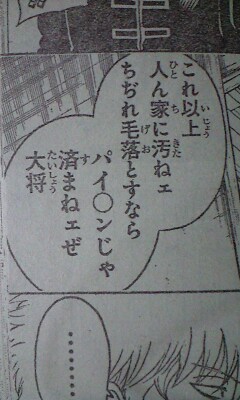 これ以上
人ん家に汚ねェ
ちぢれ毛落とすなら
パイ〇ンじゃ
済まねェぜ
大将
………